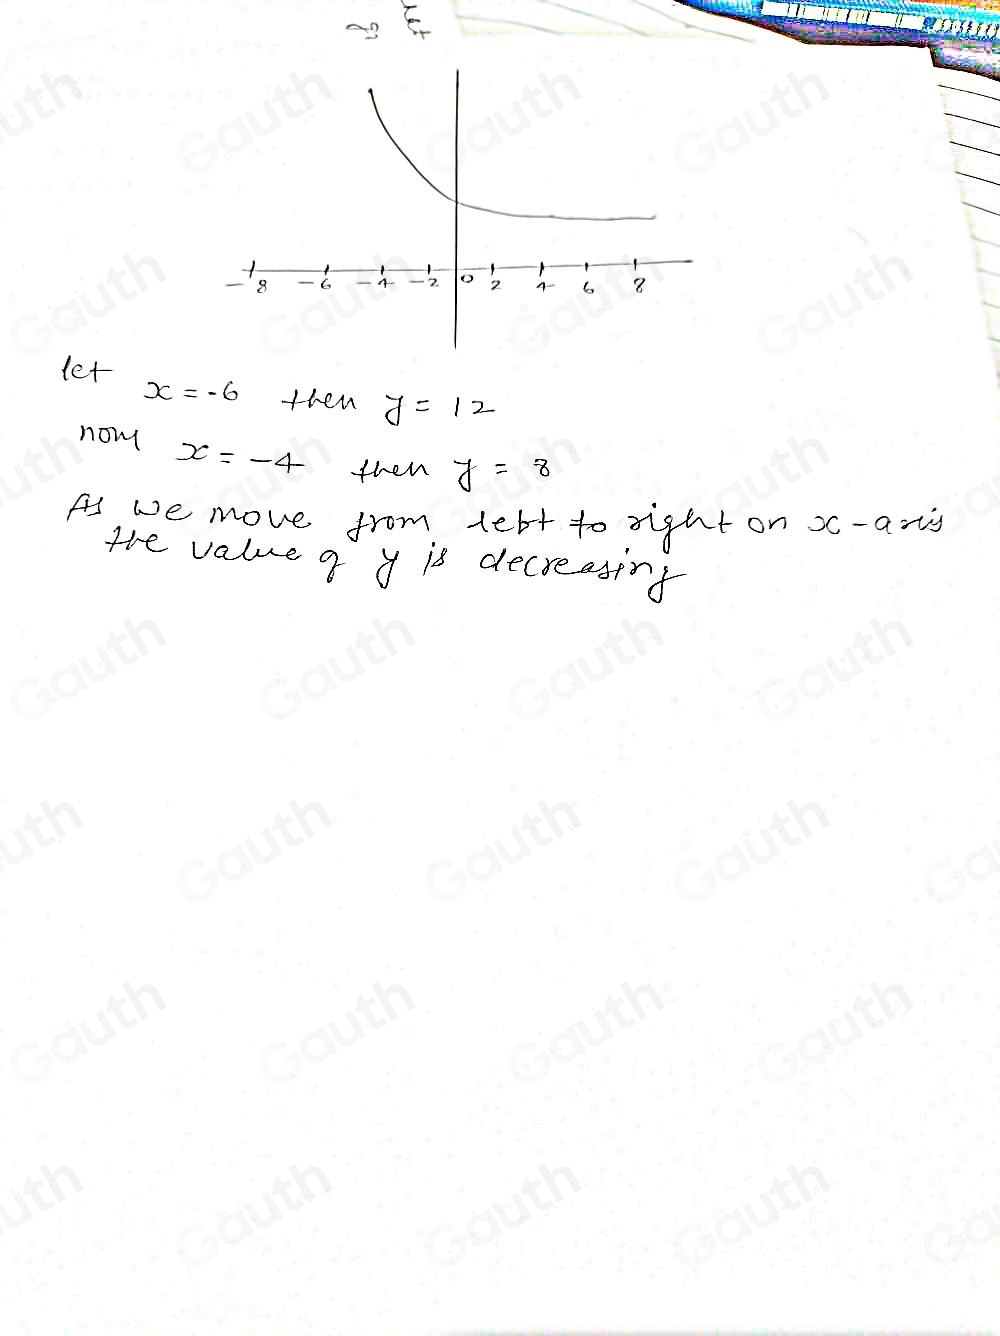 let
-8 -6 -4 -2 0 2 4 6 8
let x = -6 then y = 12
now x = -4 then y = 8
As we move from left to right on x-axis
the value of y is decreasing